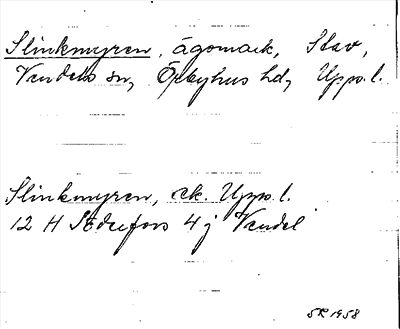 Slinkmyren, ägomark, Stav,
Vendels sn, Örbyhus hd, Upps. l.
Slinkmyren, ek. Upps. l.
12 H Söderfors 4 j Vendel
SR 1958